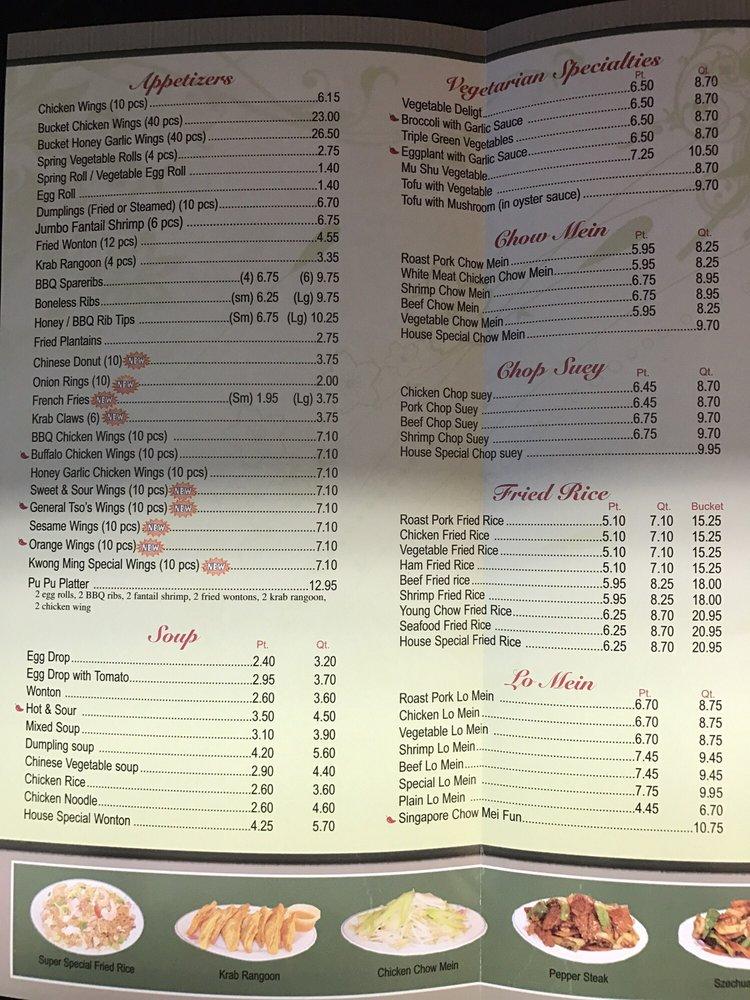 Appetizers
Chicken Wings (10 pcs) 6.15
Bucket Chicken Wings (40 pcs) 23.00
Bucket Honey Garlic Wings (40 pcs) 26.50
Spring Vegetable Rolls (4 pcs) 2.75
Spring Roll / Vegetable Egg Roll 1.40
Egg Roll 1.40
Dumplings (Fried or Steamed) (10 pcs) 6.70
Jumbo Fantail Shrimp (6 pcs) 6.75
Fried Wonton (12 pcs) 4.55
Krab Rangoon (4 pcs) 3.35
BBQ Spareribs (4) 6.75 (6) 9.75
Boneless Ribs (sm) 6.25 (Lg) 9.75
Honey / BBQ Rib Tips (Sm) 6.75 (Lg) 10.25
Fried Plantains 2.75
Chinese Donut (10) NEW 3.75
Onion Rings (10) NEW 2.00
French Fries NEW (Sm) 1.95 (Lg) 3.75
Krab Claws (6) NEW 3.75
BBQ Chicken Wings (10 pcs) 7.10
Buffalo Chicken Wings (10 pcs) 7.10
Honey Garlic Chicken Wings (10 pcs) 7.10
Sweet & Sour Wings (10 pcs) NEW 7.10
General Tso's Wings (10 pcs) NEW 7.10
Sesame Wings (10 pcs) NEW 7.10
Orange Wings (10 pcs) NEW 7.10
Kwong Ming Special Wings (10 pcs) NEW 7.10
Pu Pu Platter 12.95
2 egg rolls, 2 BBQ ribs, 2 fantail shrimp, 2 fried wontons, 2 krab rangoon,
2 chicken wing
Soup
Pt. Qt.
Egg Drop 2.40 3.20
Egg Drop with Tomato 2.95 3.70
Wonton 2.60 3.60
Hot & Sour 3.50 4.50
Mixed Soup 3.10 3.90
Dumpling soup 4.20 5.60
Chinese Vegetable soup 2.90 4.40
Chicken Rice 2.60 3.60
Chicken Noodle 2.60 4.60
House Special Wonton 4.25 5.70
Vegetarian Specialties
Pt. Qt.
Vegetable Deligt 6.50 8.70
Broccoli with Garlic Sauce 6.50 8.70
Triple Green Vegetables 6.50 8.70
Eggplant with Garlic Sauce 6.50 8.70
Mu Shu Vegetable 7.25 10.50
Tofu with Vegetable 8.70
Tofu with Mushroom (in oyster sauce) 9.70
Chow Mein
Pt. Qt.
Roast Pork Chow Mein 5.95 8.25
White Meat Chicken Chow Mein 5.95 8.25
Shrimp Chow Mein 6.75 8.95
Beef Chow Mein 6.75 8.95
Vegetable Chow Mein 5.95 8.25
House Special Chow Mein 9.70
Chop Suey
Pt. Qt.
Chicken Chop suey 6.45 8.70
Pork Chop Suey 6.45 8.70
Beef Chop Suey 6.75 9.70
Shrimp Chop Suey 6.75 9.70
House Special Chop suey 9.95
Fried Rice
Pt. Qt. Bucket
Roast Pork Fried Rice 5.10 7.10 15.25
Chicken Fried Rice 5.10 7.10 15.25
Vegetable Fried Rice 5.10 7.10 15.25
Ham Fried Rice 5.10 7.10 15.25
Beef Fried rice 5.95 8.25 18.00
Shrimp Fried Rice 5.95 8.25 18.00
Young Chow Fried Rice 6.25 8.70 20.95
Seafood Fried Rice 6.25 8.70 20.95
House Special Fried Rice 6.25 8.70 20.95
Lo Mein
Pt. Qt.
Roast Pork Lo Mein 6.70 8.75
Chicken Lo Mein 6.70 8.75
Vegetable Lo Mein 6.70 8.75
Shrimp Lo Mein 7.45 9.45
Beef Lo Mein 7.45 9.45
Special Lo Mein 7.75 9.95
Plain Lo Mein 4.45 6.70
Singapore Chow Mei Fun 10.75
Super Special Fried Rice
Krab Rangoon
Chicken Chow Mein
Pepper Steak
Szechua